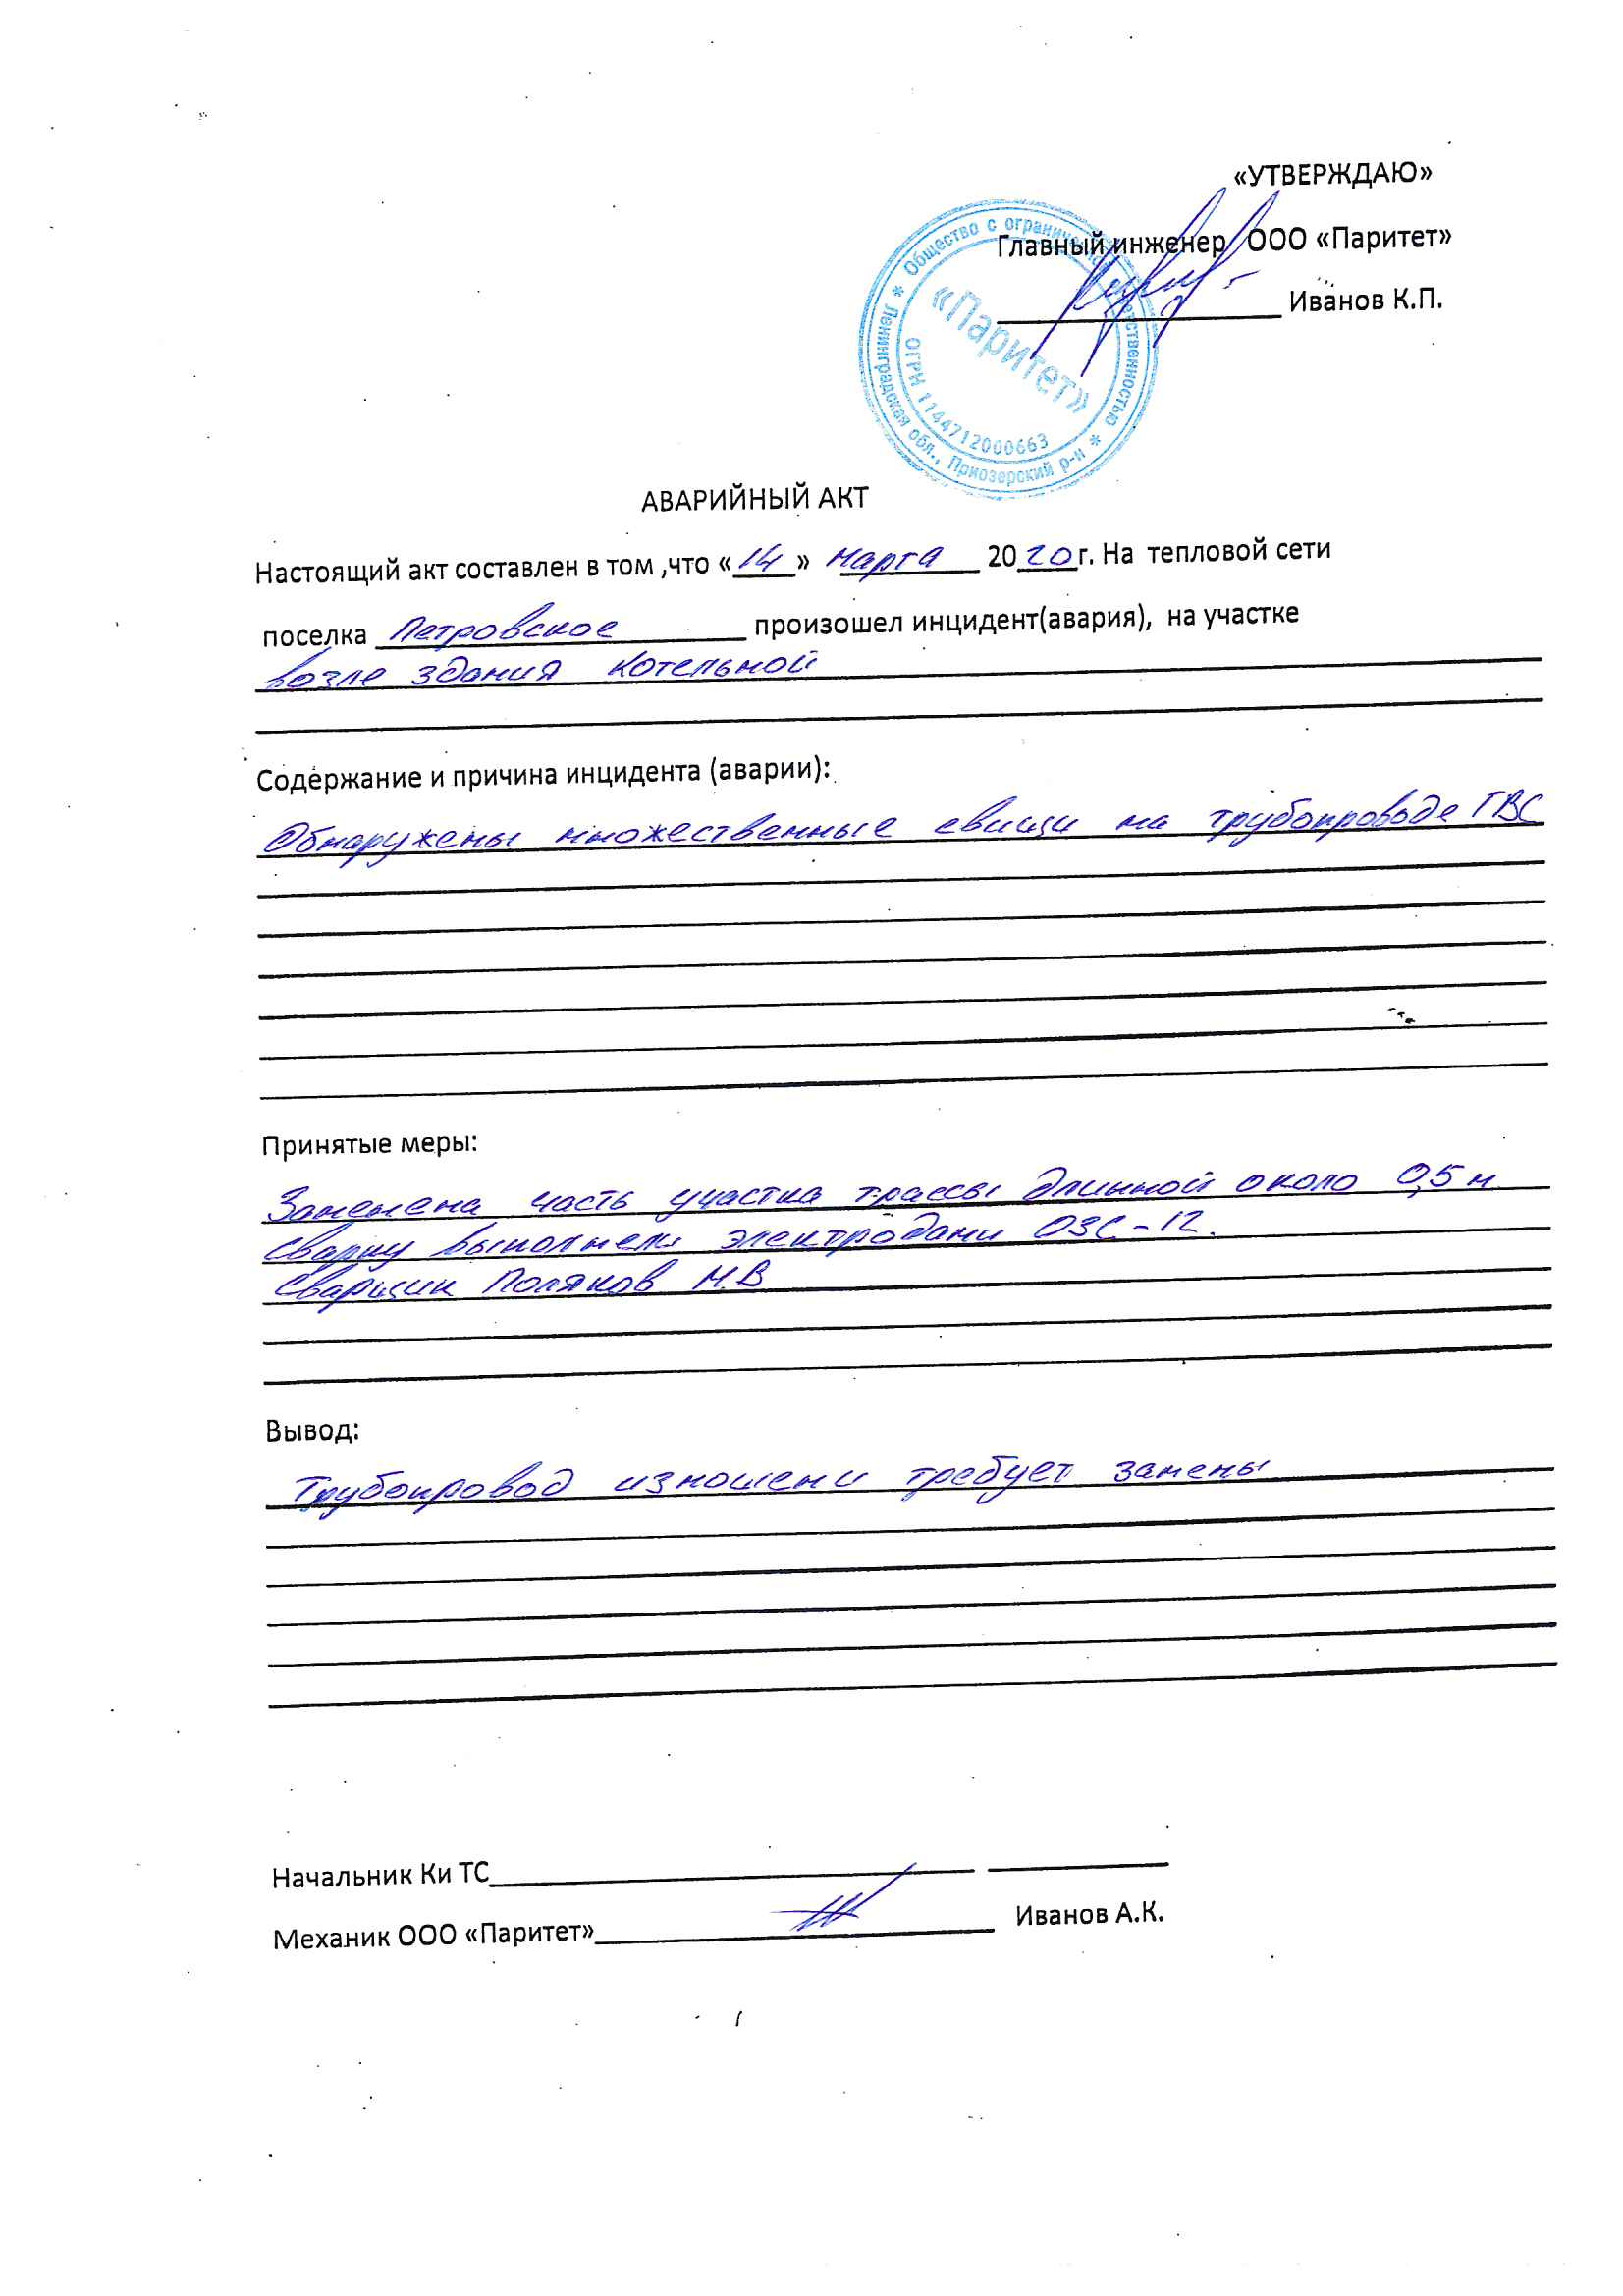 «УТВЕРЖДАЮ»
Главный инженер ООО «Паритет»
Иванов К.П.
Общество с ограниченной ответственностью
Ленинградская обл., Приозерский р-н
ОГРН 1144712000663
«Паритет»
АВАРИЙНЫЙ АКТ
Настоящий акт составлен в том ,что «14» марта 2020г. На тепловой сети
поселка Петровское произошел инцидент(авария), на участке
возле здания котельной
Содержание и причина инцидента (аварии):
Обнаружены множественные свищи на трубопроводе ГВС
Принятые меры:
Заменена часть участка трассы длинной около 0,5 м
Сварку выполнял электродами ОЗС-12.
Сварщик Поляков М.В
Вывод:
Трубопровод изношен и требует замены
Начальник Ки ТС
Механик ООО «Паритет» Иванов А.К.